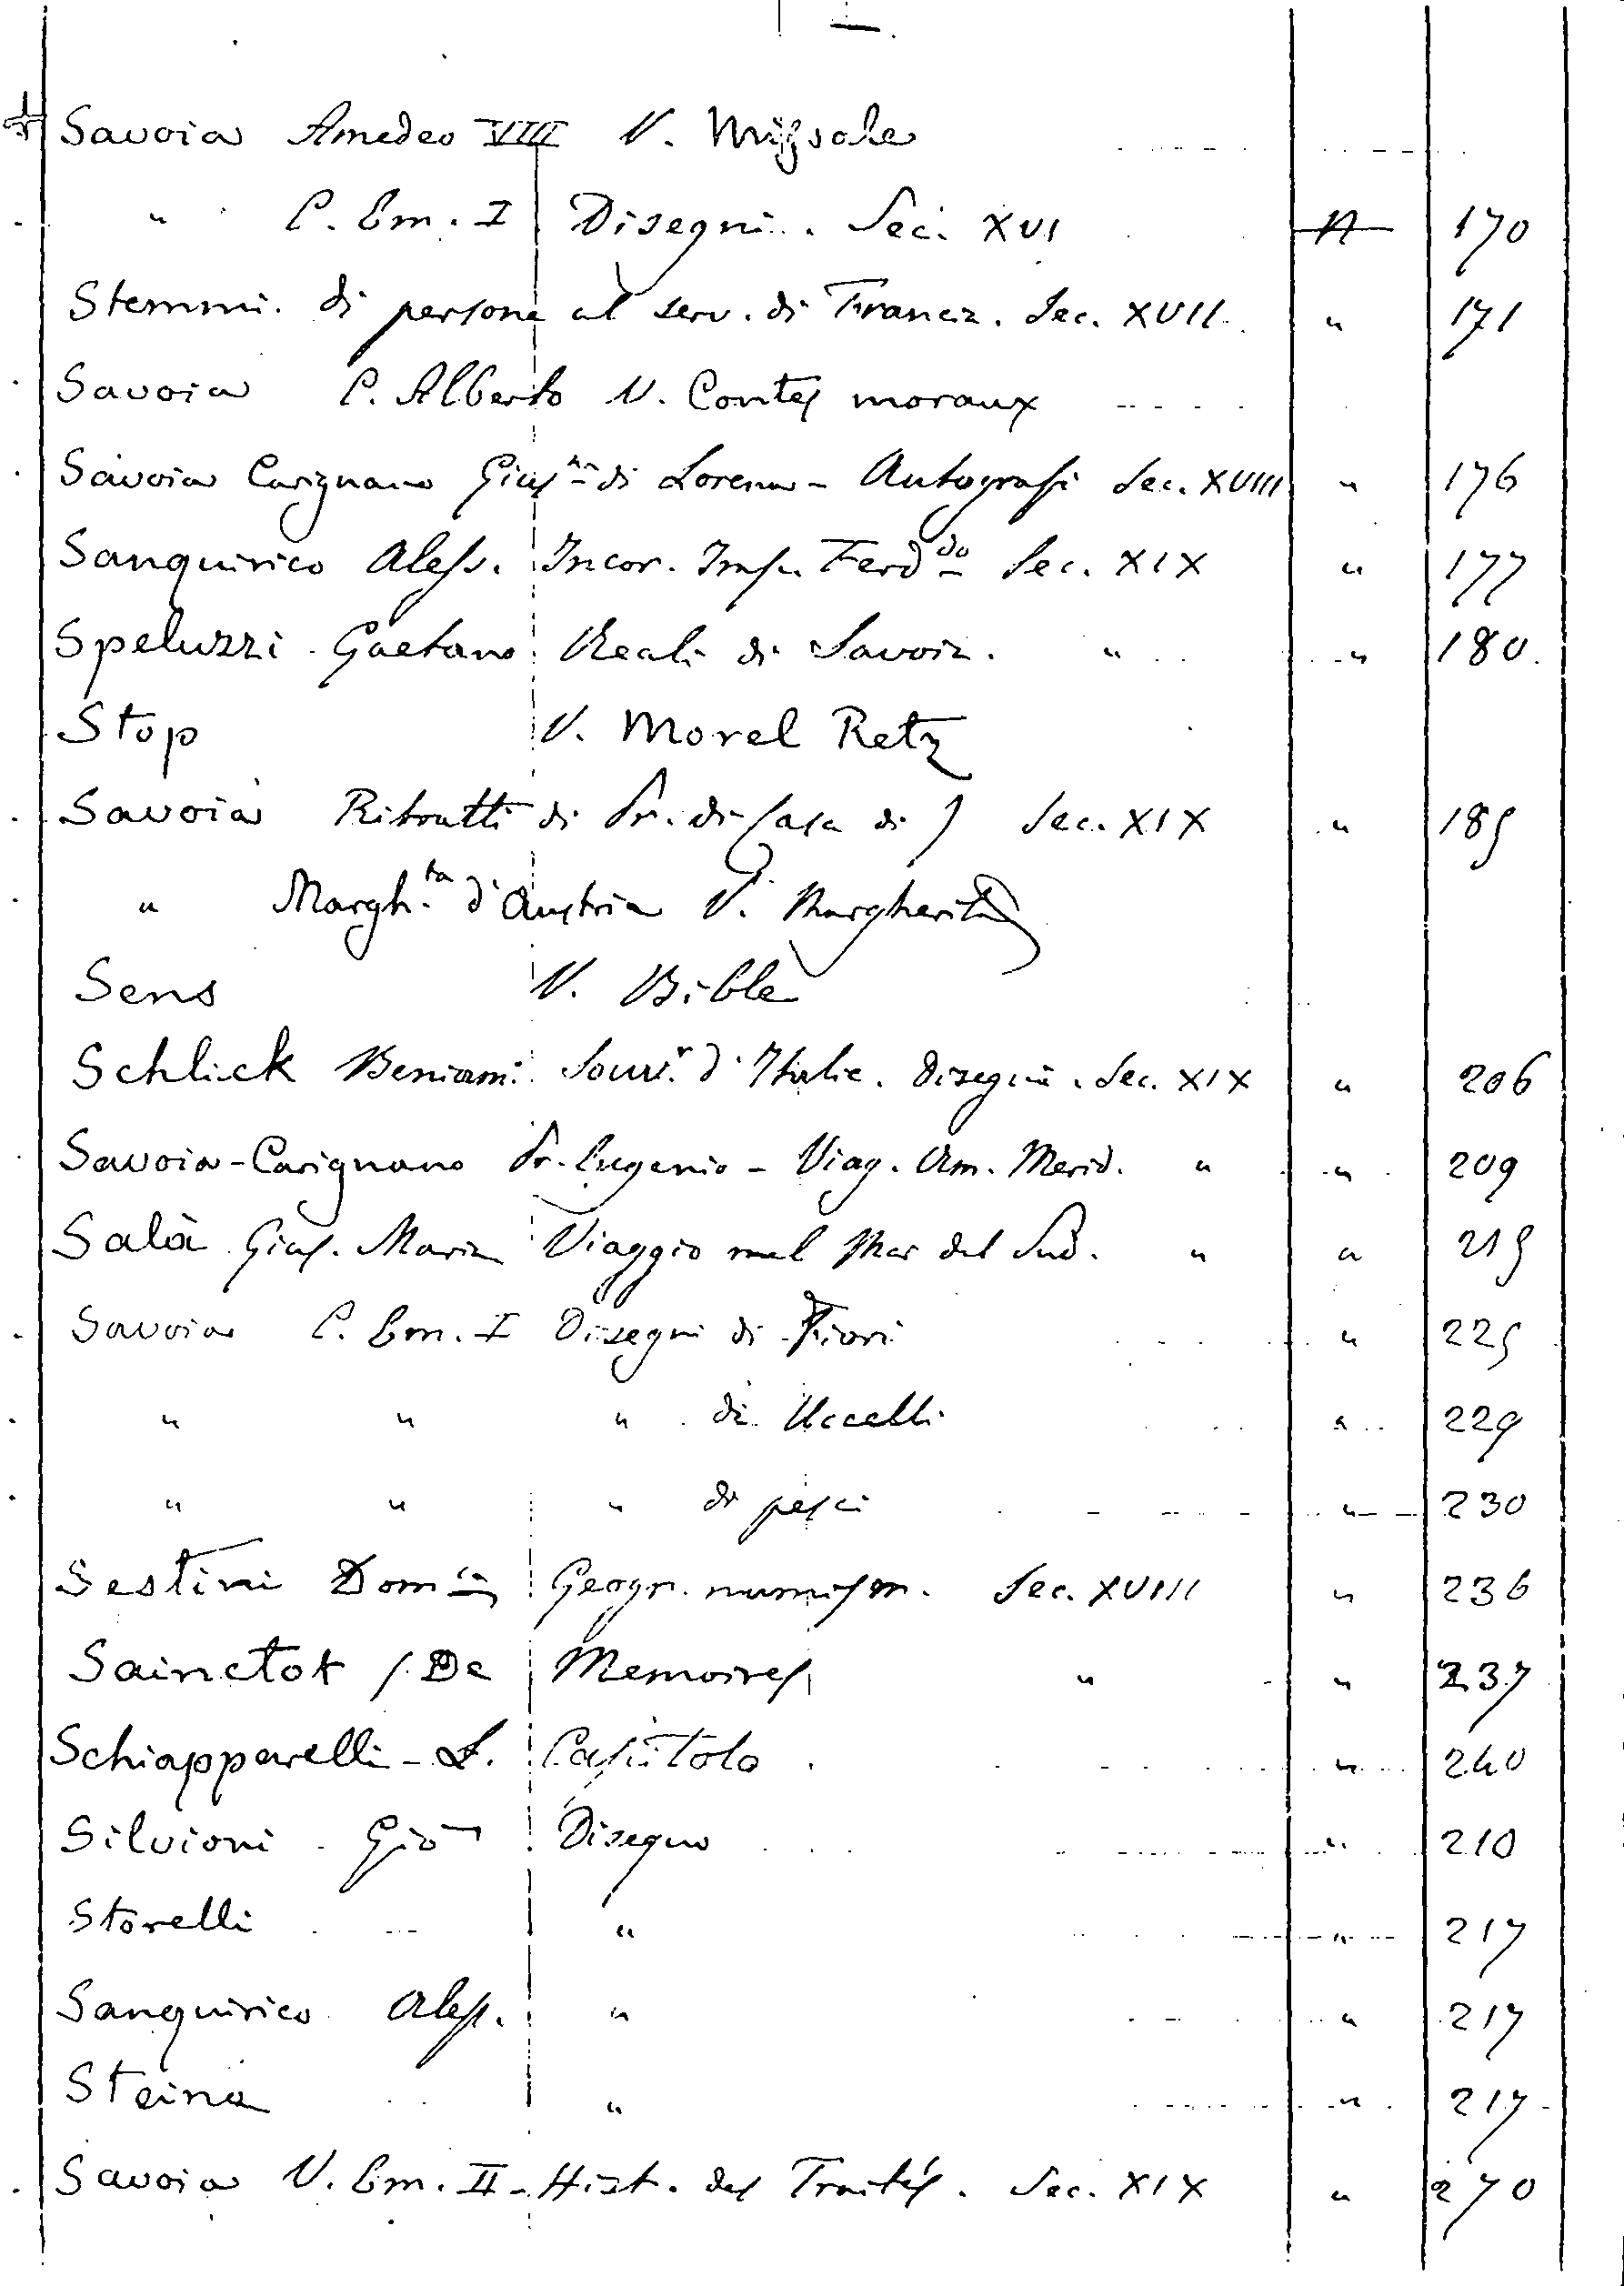 Savoia Amedeo VIII V. Missale
" C. Em. I Disegni. Sec. XVI " 170
Stemmi di persone al serv. di Francia. Sec. XVII " 171
Savoia C. Alberto V. Contes moraux
Savoia Carignano Gius.na di Lorena - Autografi Sec. XVIII " 176
Sanquirico Aless. Incor. Imp. Ferd.do Sec. XIX " 177
Speluzzi Gaetano Reali di Savoia. " " 180
Stop V. Morel Retz
Savoia Ritratti di Pr. di Casa di S Sec. XIX " 185
" Margh.ta d'Austria V. Margherita
Sens V. Bible
Schlick Beniam. Souv.r d'Italie. Disegni. Sec. XIX " 206
Savoia-Carignano Pr. Eugenio - Viag. Am. Merid. " " 209
Sala Gius. Maria Viaggio nel Mar del Sud. " " 215
Savoia C. Em. I Disegni di Fiori " 225
" " " di Uccelli " 229
" " " di pesci " 230
Sestini Dom.co Geogr. numism. Sec. XVIII " 236
Sainctot (De Memoires " " 237
Schiapparelli - L. Capitolo " 240
Silvioni Gio Disegno " 210
Storelli " " 217
Sanquirico Aless. " " 217
Steina " " 217
Savoia V. Em. II - Hist. des Traités. Sec. XIX " 270